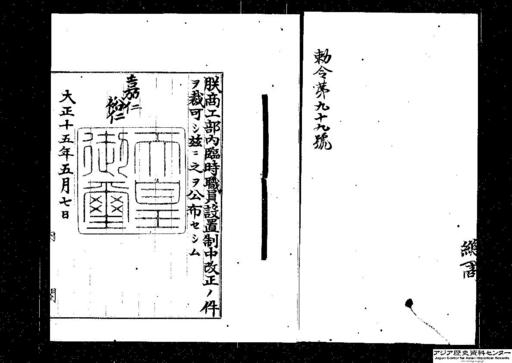 勅令第九十九號
朕商工部內臨時職員設置制中改正ノ件
ヲ裁可シ玆ニ之ヲ公布セシム
嘉仁
裕仁
天皇
御璽
大正十五年五月七日
內閣
アジア歴史資料センター
Japan Center for Asian Historical Records